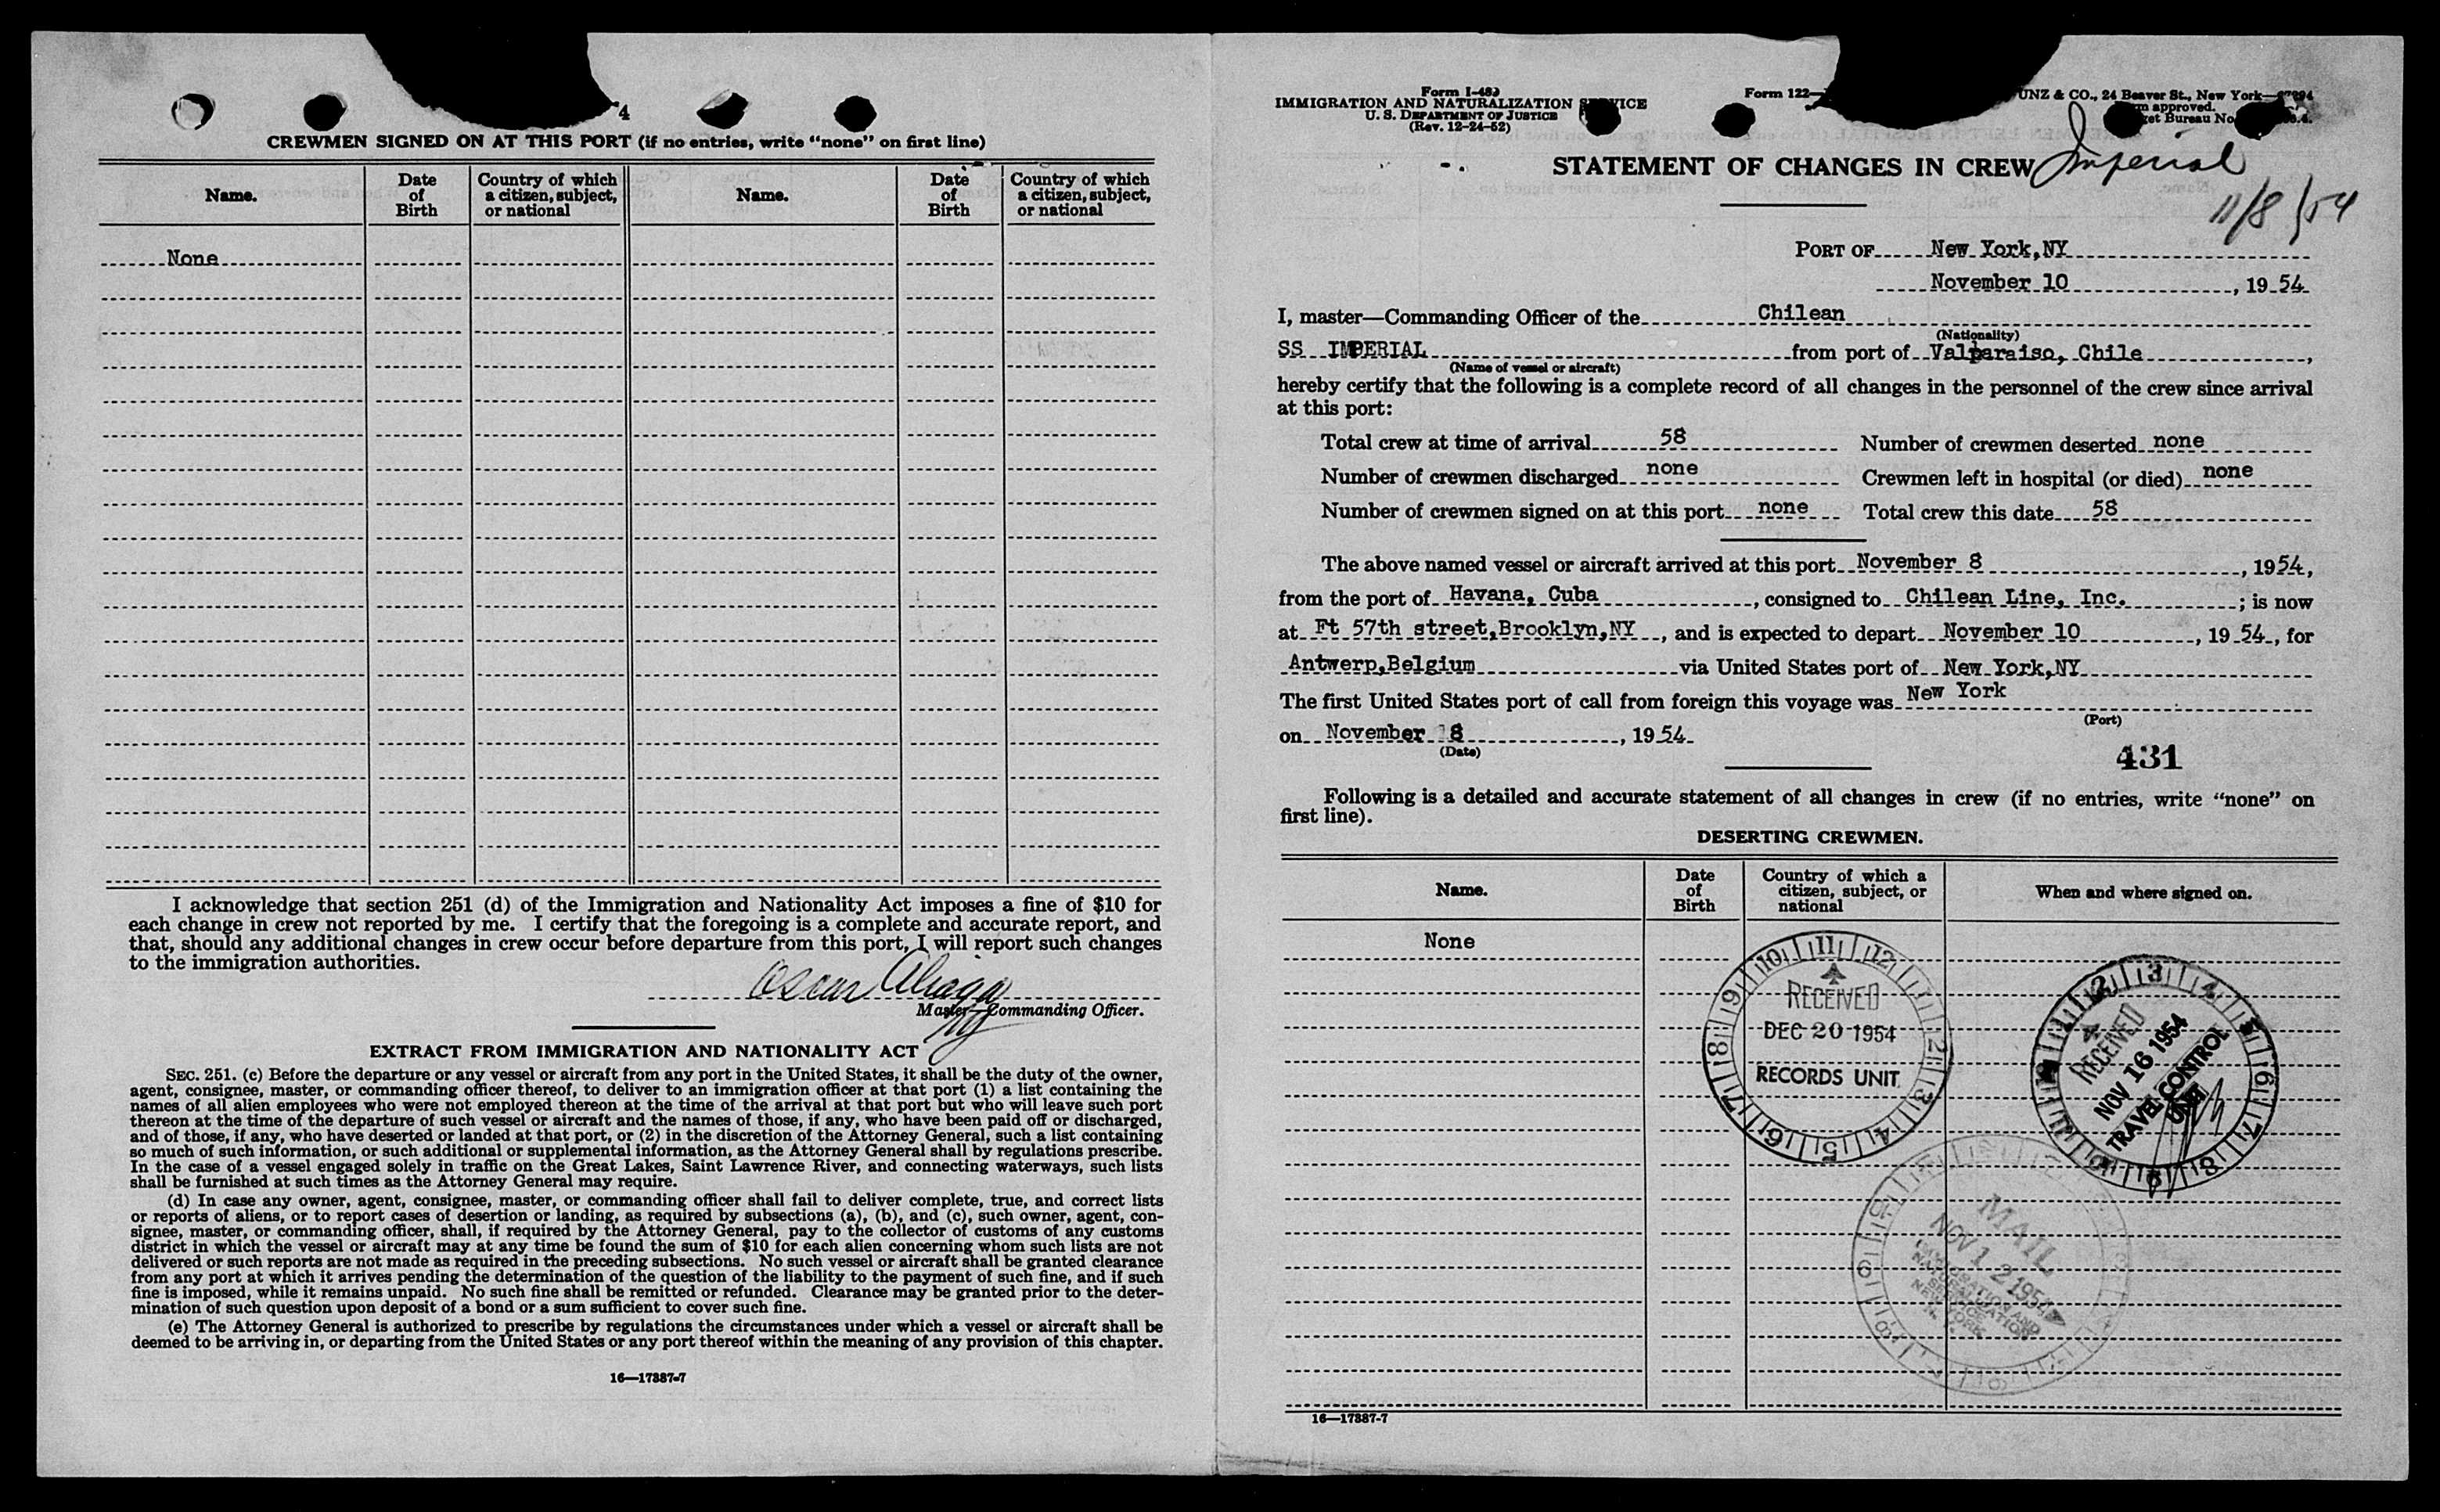 4
CREWMEN SIGNED ON AT THIS PORT (if no entries, write "none" on first line)
Name. Date of Birth Country of which a citizen, subject, or national Name. Date of Birth Country of which a citizen, subject, or national
None
I acknowledge that section 251 (d) of the Immigration and Nationality Act imposes a fine of $10 for
each change in crew not reported by me. I certify that the foregoing is a complete and accurate report, and
that, should any additional changes in crew occur before departure from this port, I will report such changes
to the immigration authorities.
Oscar Aliaga
Master—Commanding Officer.
EXTRACT FROM IMMIGRATION AND NATIONALITY ACT
SEC. 251. (c) Before the departure or any vessel or aircraft from any port in the United States, it shall be the duty of the owner,
agent, consignee, master, or commanding officer thereof, to deliver to an immigration officer at that port (1) a list containing the
names of all alien employees who were not employed thereon at the time of the arrival at that port but who will leave such port
thereon at the time of the departure of such vessel or aircraft and the names of those, if any, who have been paid off or discharged,
and of those, if any, who have deserted or landed at that port, or (2) in the discretion of the Attorney General, such a list containing
so much of such information, or such additional or supplemental information, as the Attorney General shall by regulations prescribe.
In the case of a vessel engaged solely in traffic on the Great Lakes, Saint Lawrence River, and connecting waterways, such lists
shall be furnished at such times as the Attorney General may require.
(d) In case any owner, agent, consignee, master, or commanding officer shall fail to deliver complete, true, and correct lists
or reports of aliens, or to report cases of desertion or landing, as required by subsections (a), (b), and (c), such owner, agent, con-
signee, master, or commanding officer, shall, if required by the Attorney General, pay to the collector of customs of any customs
district in which the vessel or aircraft may at any time be found the sum of $10 for each alien concerning whom such lists are not
delivered or such reports are not made as required in the preceding subsections. No such vessel or aircraft shall be granted clearance
from any port at which it arrives pending the determination of the question of the liability to the payment of such fine, and if such
fine is imposed, while it remains unpaid. No such fine shall be remitted or refunded. Clearance may be granted prior to the deter-
mination of such question upon deposit of a bond or a sum sufficient to cover such fine.
(e) The Attorney General is authorized to prescribe by regulations the circumstances under which a vessel or aircraft shall be
deemed to be arriving in, or departing from the United States or any port thereof within the meaning of any provision of this chapter.
16—17887-7
Form I-489
IMMIGRATION AND NATURALIZATION SERVICE
U. S. DEPARTMENT OF JUSTICE
(Rev. 12-24-52)
Form 122— UNZ & CO., 24 Beaver St., New York—
approved.
Bureau No.
STATEMENT OF CHANGES IN CREW
Imperial
11/8/54
PORT OF New York,NY
November 10, 19 54
I, master—Commanding Officer of the Chilean
(Nationality)
SS IMPERIAL from port of Valparaiso, Chile,
(Name of vessel or aircraft)
hereby certify that the following is a complete record of all changes in the personnel of the crew since arrival
at this port:
Total crew at time of arrival 58 Number of crewmen deserted none
Number of crewmen discharged none Crewmen left in hospital (or died) none
Number of crewmen signed on at this port none Total crew this date 58
The above named vessel or aircraft arrived at this port November 8, 1954,
from the port of Havana, Cuba, consigned to Chilean Line, Inc.; is now
at Ft 57th street,Brooklyn,NY, and is expected to depart November 10, 19 54, for
Antwerp,Belgium via United States port of New York,NY
The first United States port of call from foreign this voyage was New York
(Port)
on November 8, 1954
(Date)
431
Following is a detailed and accurate statement of all changes in crew (if no entries, write "none" on
first line).
DESERTING CREWMEN.
Name. Date of Birth Country of which a citizen, subject, or national When and where signed on.
None
RECEIVED
DEC 20 1954
RECORDS UNIT
RECEIVED
NOV 16 1954
TRAVEL CONTROL
UNIT
MAIL
NOV 12 1954
IMMIGRATION AND
NATURALIZATION
SERVICE
NEW YORK
N. Y.
16—17887-7